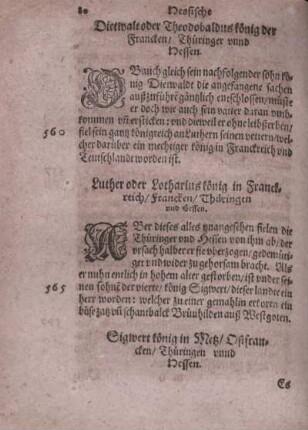 80 Hessische
Dietwalt oder Theodobaldus könig der
Francken/ Thüringer vnnd
Hessen.
OBauch gleich sein nachfolgender sohn kö-
nig Dietwaldt die angefangene sachen
außzuführẽ gãntzlich entschlossen/ müster
er doch wie auch sein vatter daran vmb-
kommen vñ ersticken: vnd dieweil er ohne leibserben/
560 fiel sein gantz königreich an Luthern seinen vettern/ wel-
cher darüber ein mechtiger könig in Franckreich vnd
Teutschlandt worden ist.
Luther oder Lotharius könig in Franck-
reich/ Francken/ Thüringen
vnd Hessen.
ABer dieses alles vnangesehen fielen die
Thüringer vnd Hessen von ihm ab/ der
vrsach halber er sie vberzogen/ gedemüti-
get vnd wider zu gehorsam bracht. Als
er nuhn entlich in hohem alter gestorben/ ist vnder sei-
565 nen söhnẽ der vierte/ könig Sigwert/ dieser landte ein
herr worden: welcher zu einer gemahlin erkoren ein
bũsezatz vñ schantbalck Brunhilden auß Westgoten.
Sigwert könig in Metz/ Ostfran-
cken/ Thüringen vnnd
Hessen.
Es